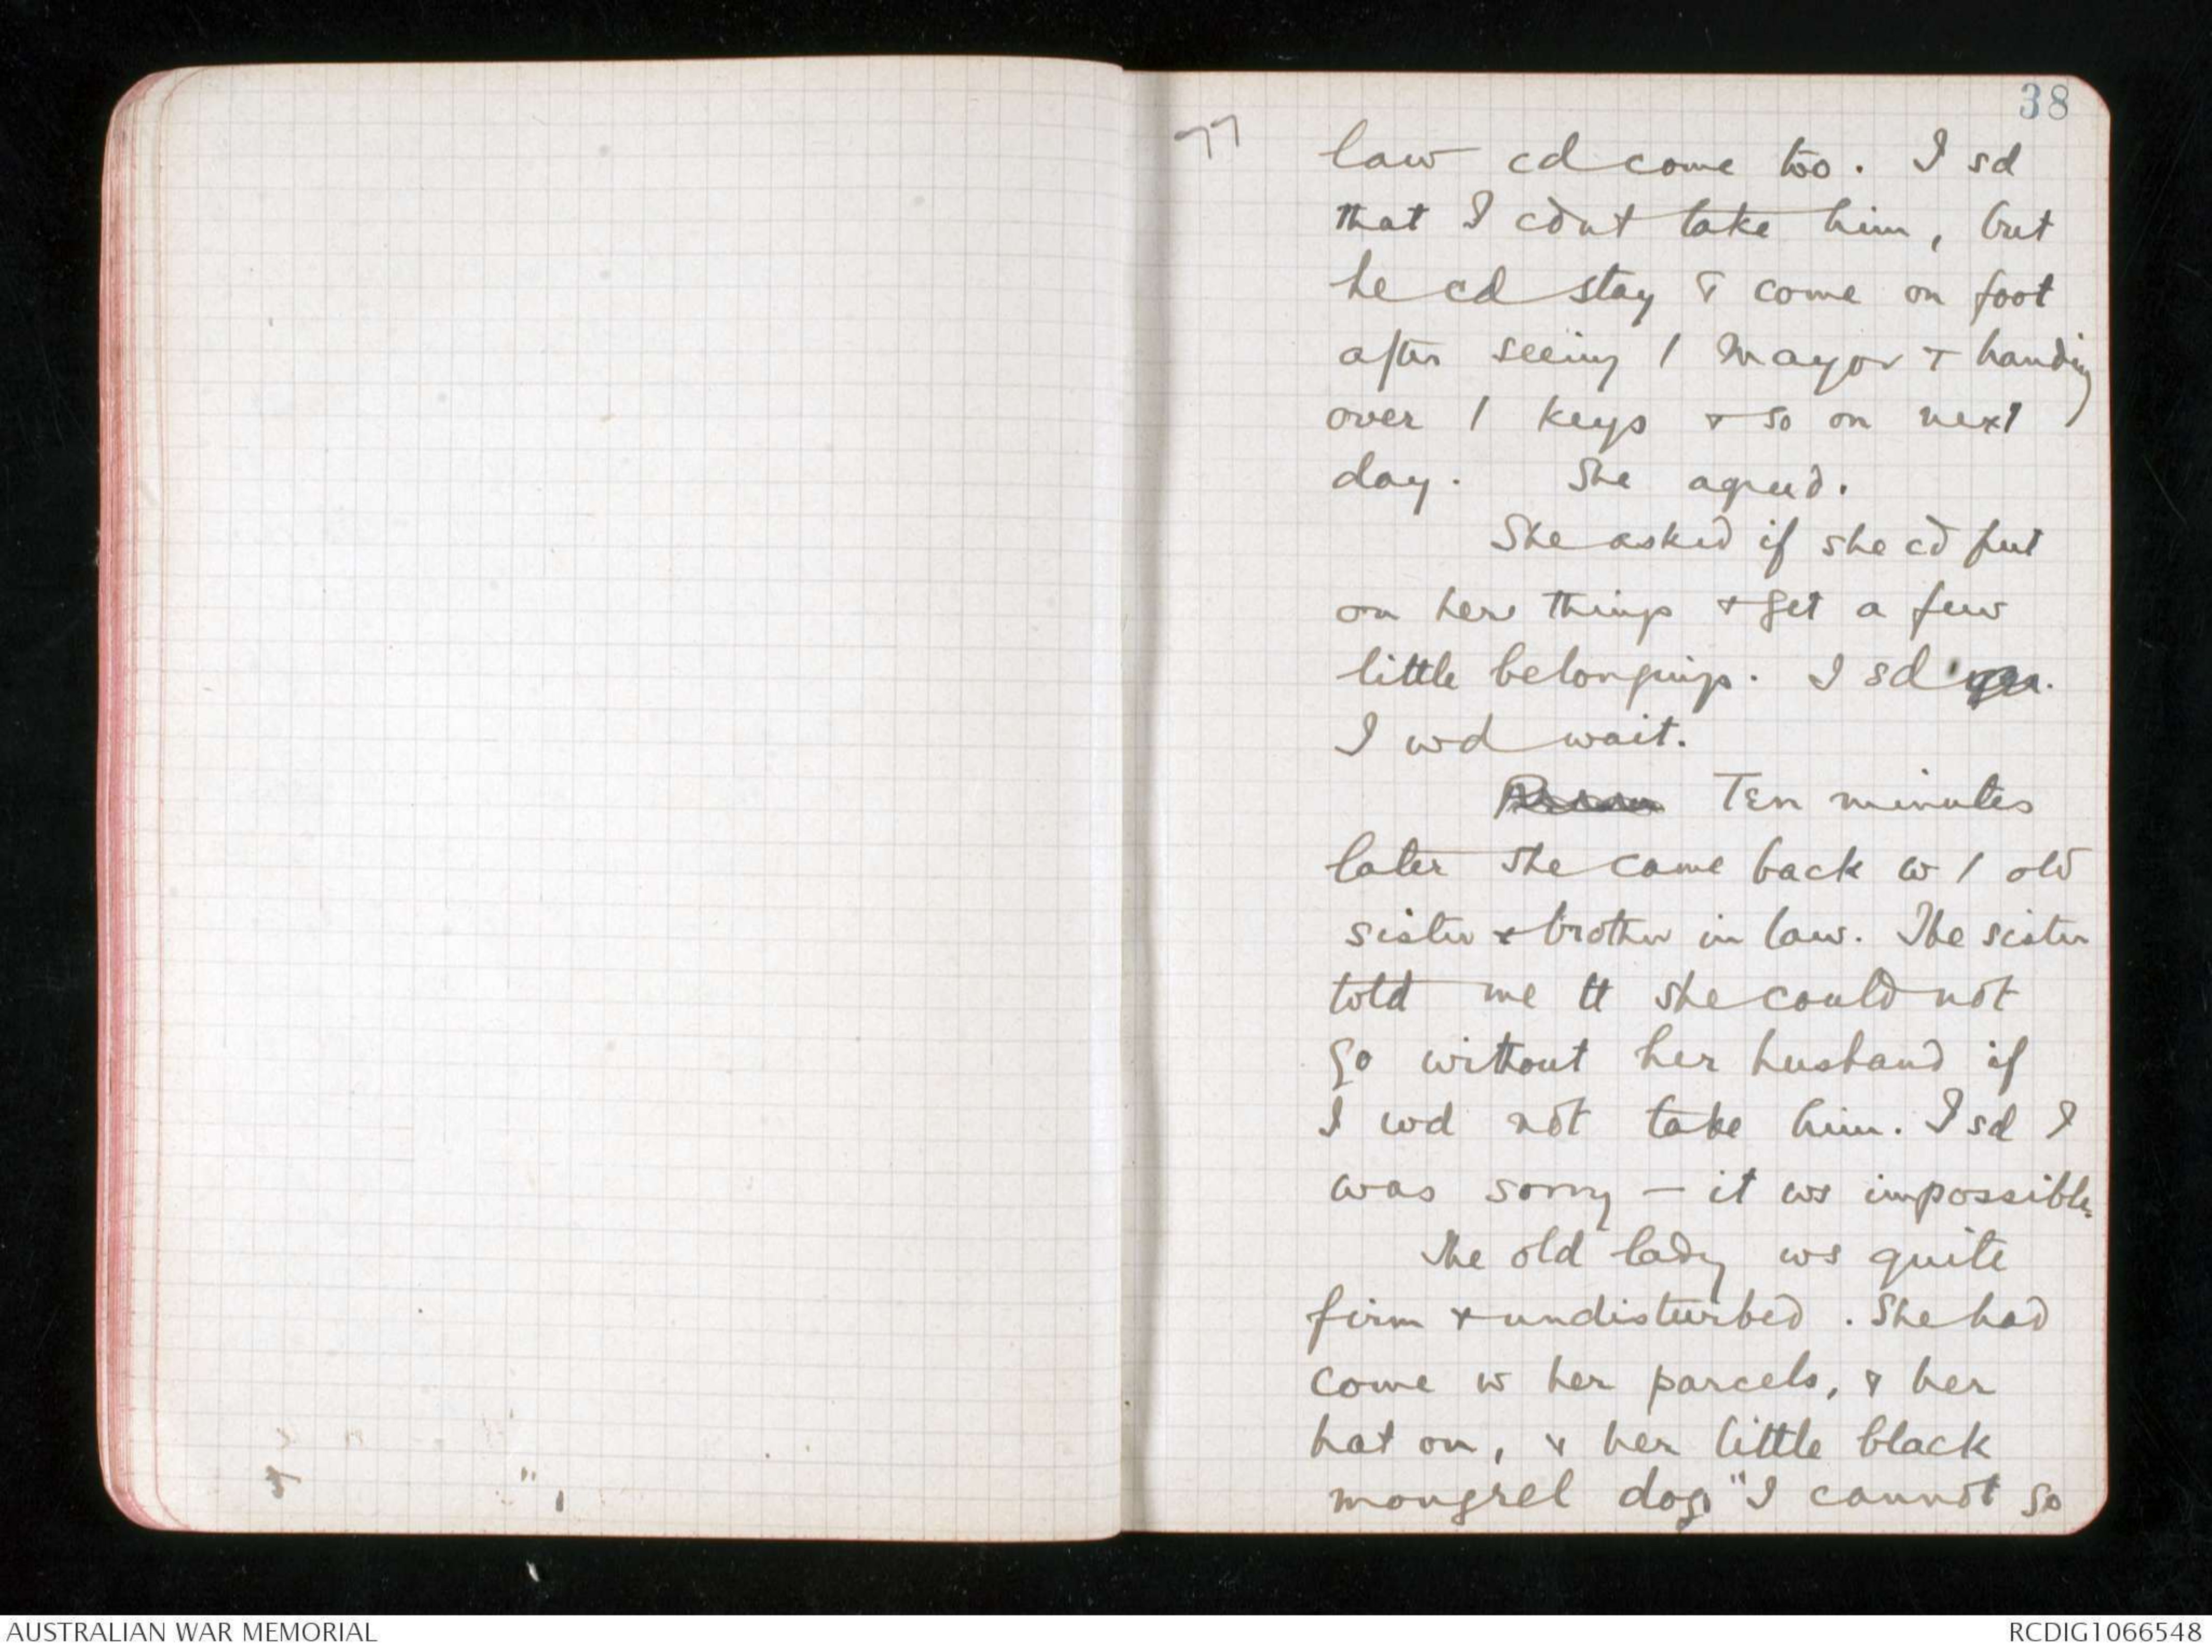 38
77
law cd come too. I sd
that I cdnt take him, but
he cd stay & come on foot
after seeing / Mayor & handing
over / keys & so on next
day. She agreed.
She asked if she cd put
on her things & get a few
little belongings. I sd yes.
I wd wait.
Ten minutes
later she came back w / old
sister & brother in law. The sister
told me tt she could not
go without her husband if
I wd not take him. I sd I
was sorry – it ws impossible.
The old lady ws quite
firm & undisturbed. She had
come w her parcels, & her
hat on, & her little black
mongrel dog. "I cannot go
AUSTRALIAN WAR MEMORIAL
RCDIG1066548